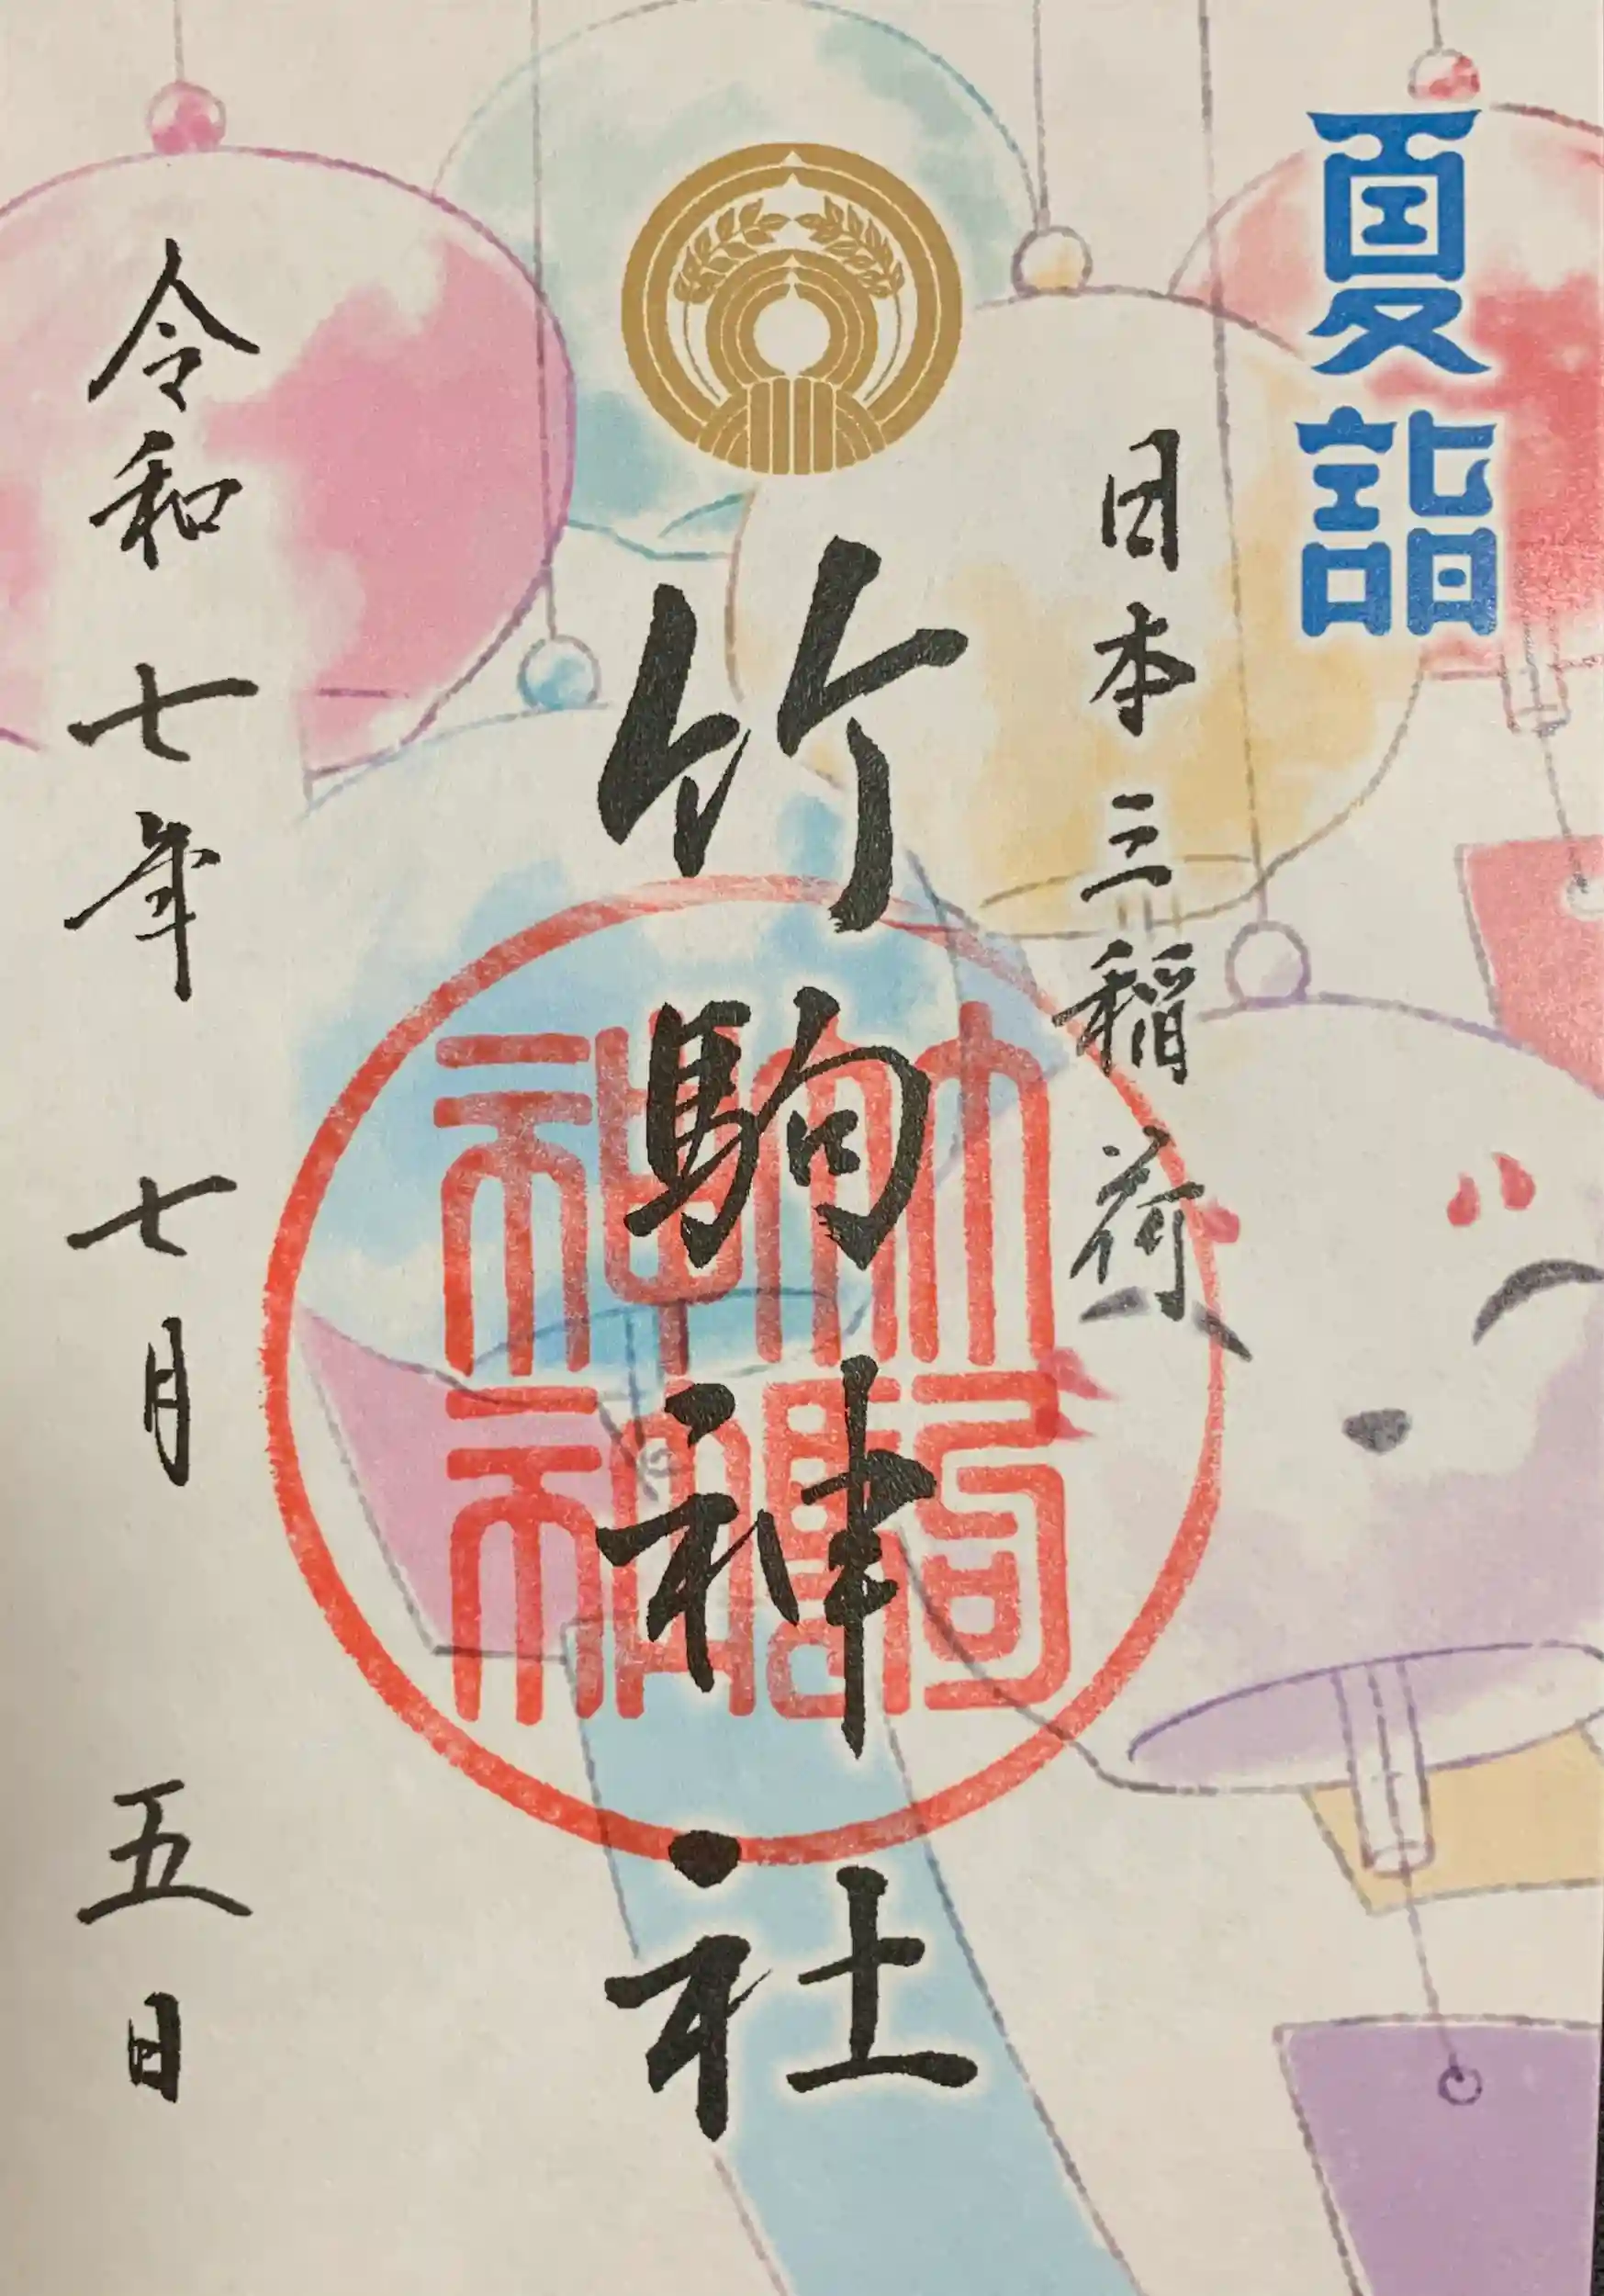 夏詣
日本三稲荷
竹駒神社
竹駒神社
令和七年七月五日